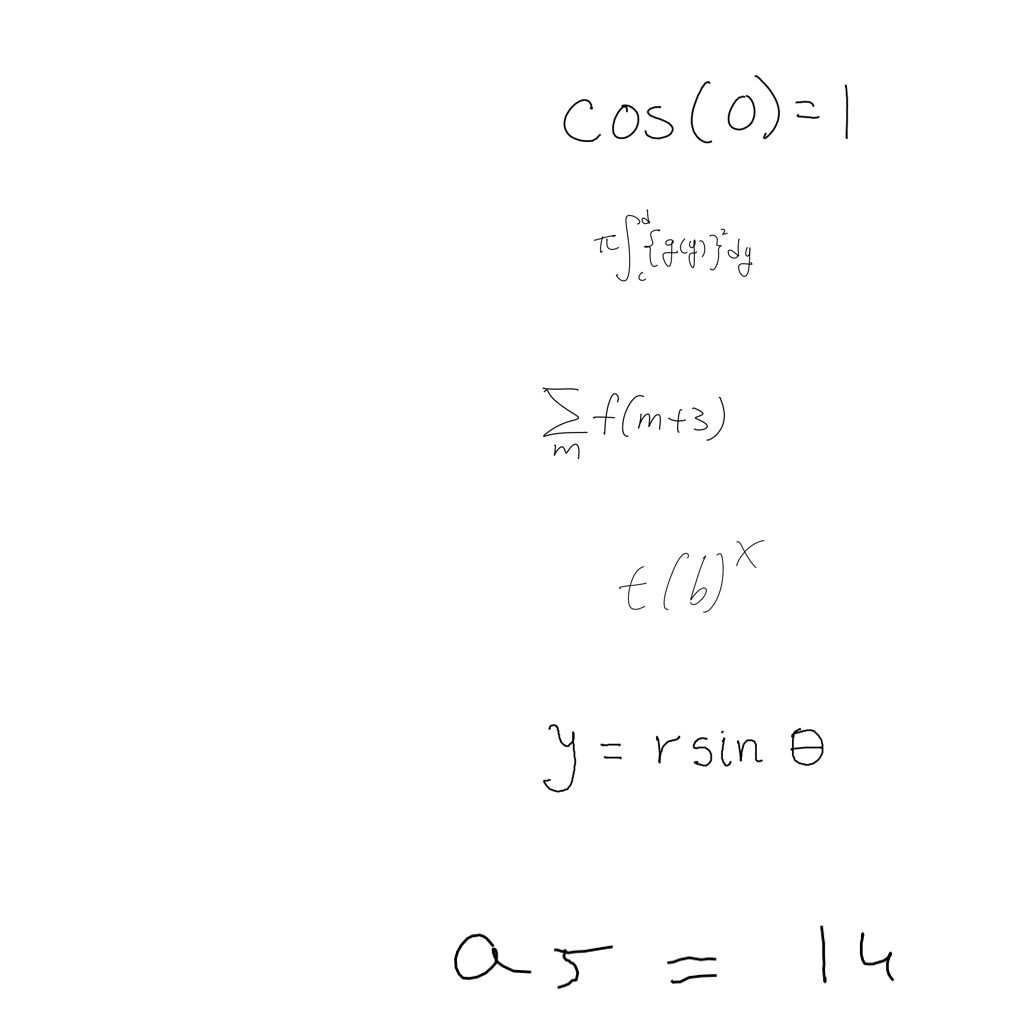 cos(0)=1
π∫_c^d{g(y)}²dy
∑_m f(m+3)
t(b)^x
y = r sin θ
a5 = 14